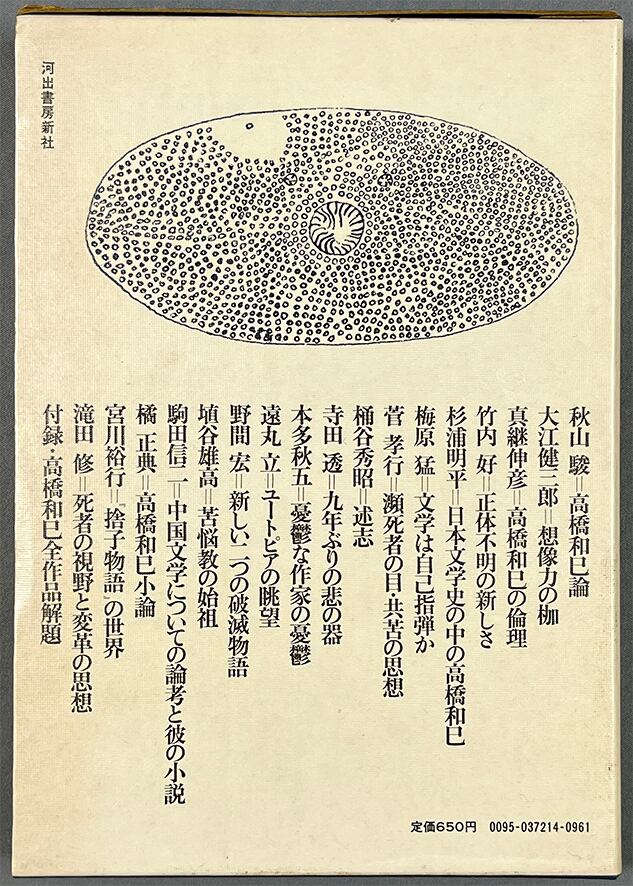 河出書房新社
秋山 駿＝高橋和巳論
大江健三郎＝想像力の枷
真継伸彦＝高橋和巳の倫理
竹内 好＝正体不明の新しさ
杉浦明平＝日本文学史の中の高橋和巳
梅原 猛＝文学は自己指弾か
菅 孝行＝瀕死者の目・共苦の思想
桶谷秀昭＝述志
寺田 透＝九年ぶりの悲の器
本多秋五＝憂鬱な作家の憂鬱
遠丸 立＝ユートピアの眺望
野間 宏＝新しい二つの破滅物語
埴谷雄高＝苦悩教の始祖
駒田信二＝中国文学についての論考と彼の小説
橘 正典＝高橋和巳小論
宮川裕行＝「捨子物語」の世界
滝田 修＝死者の視野と変革の思想
付録・高橋和巳全作品解題
定価650円 0095-037214-0961